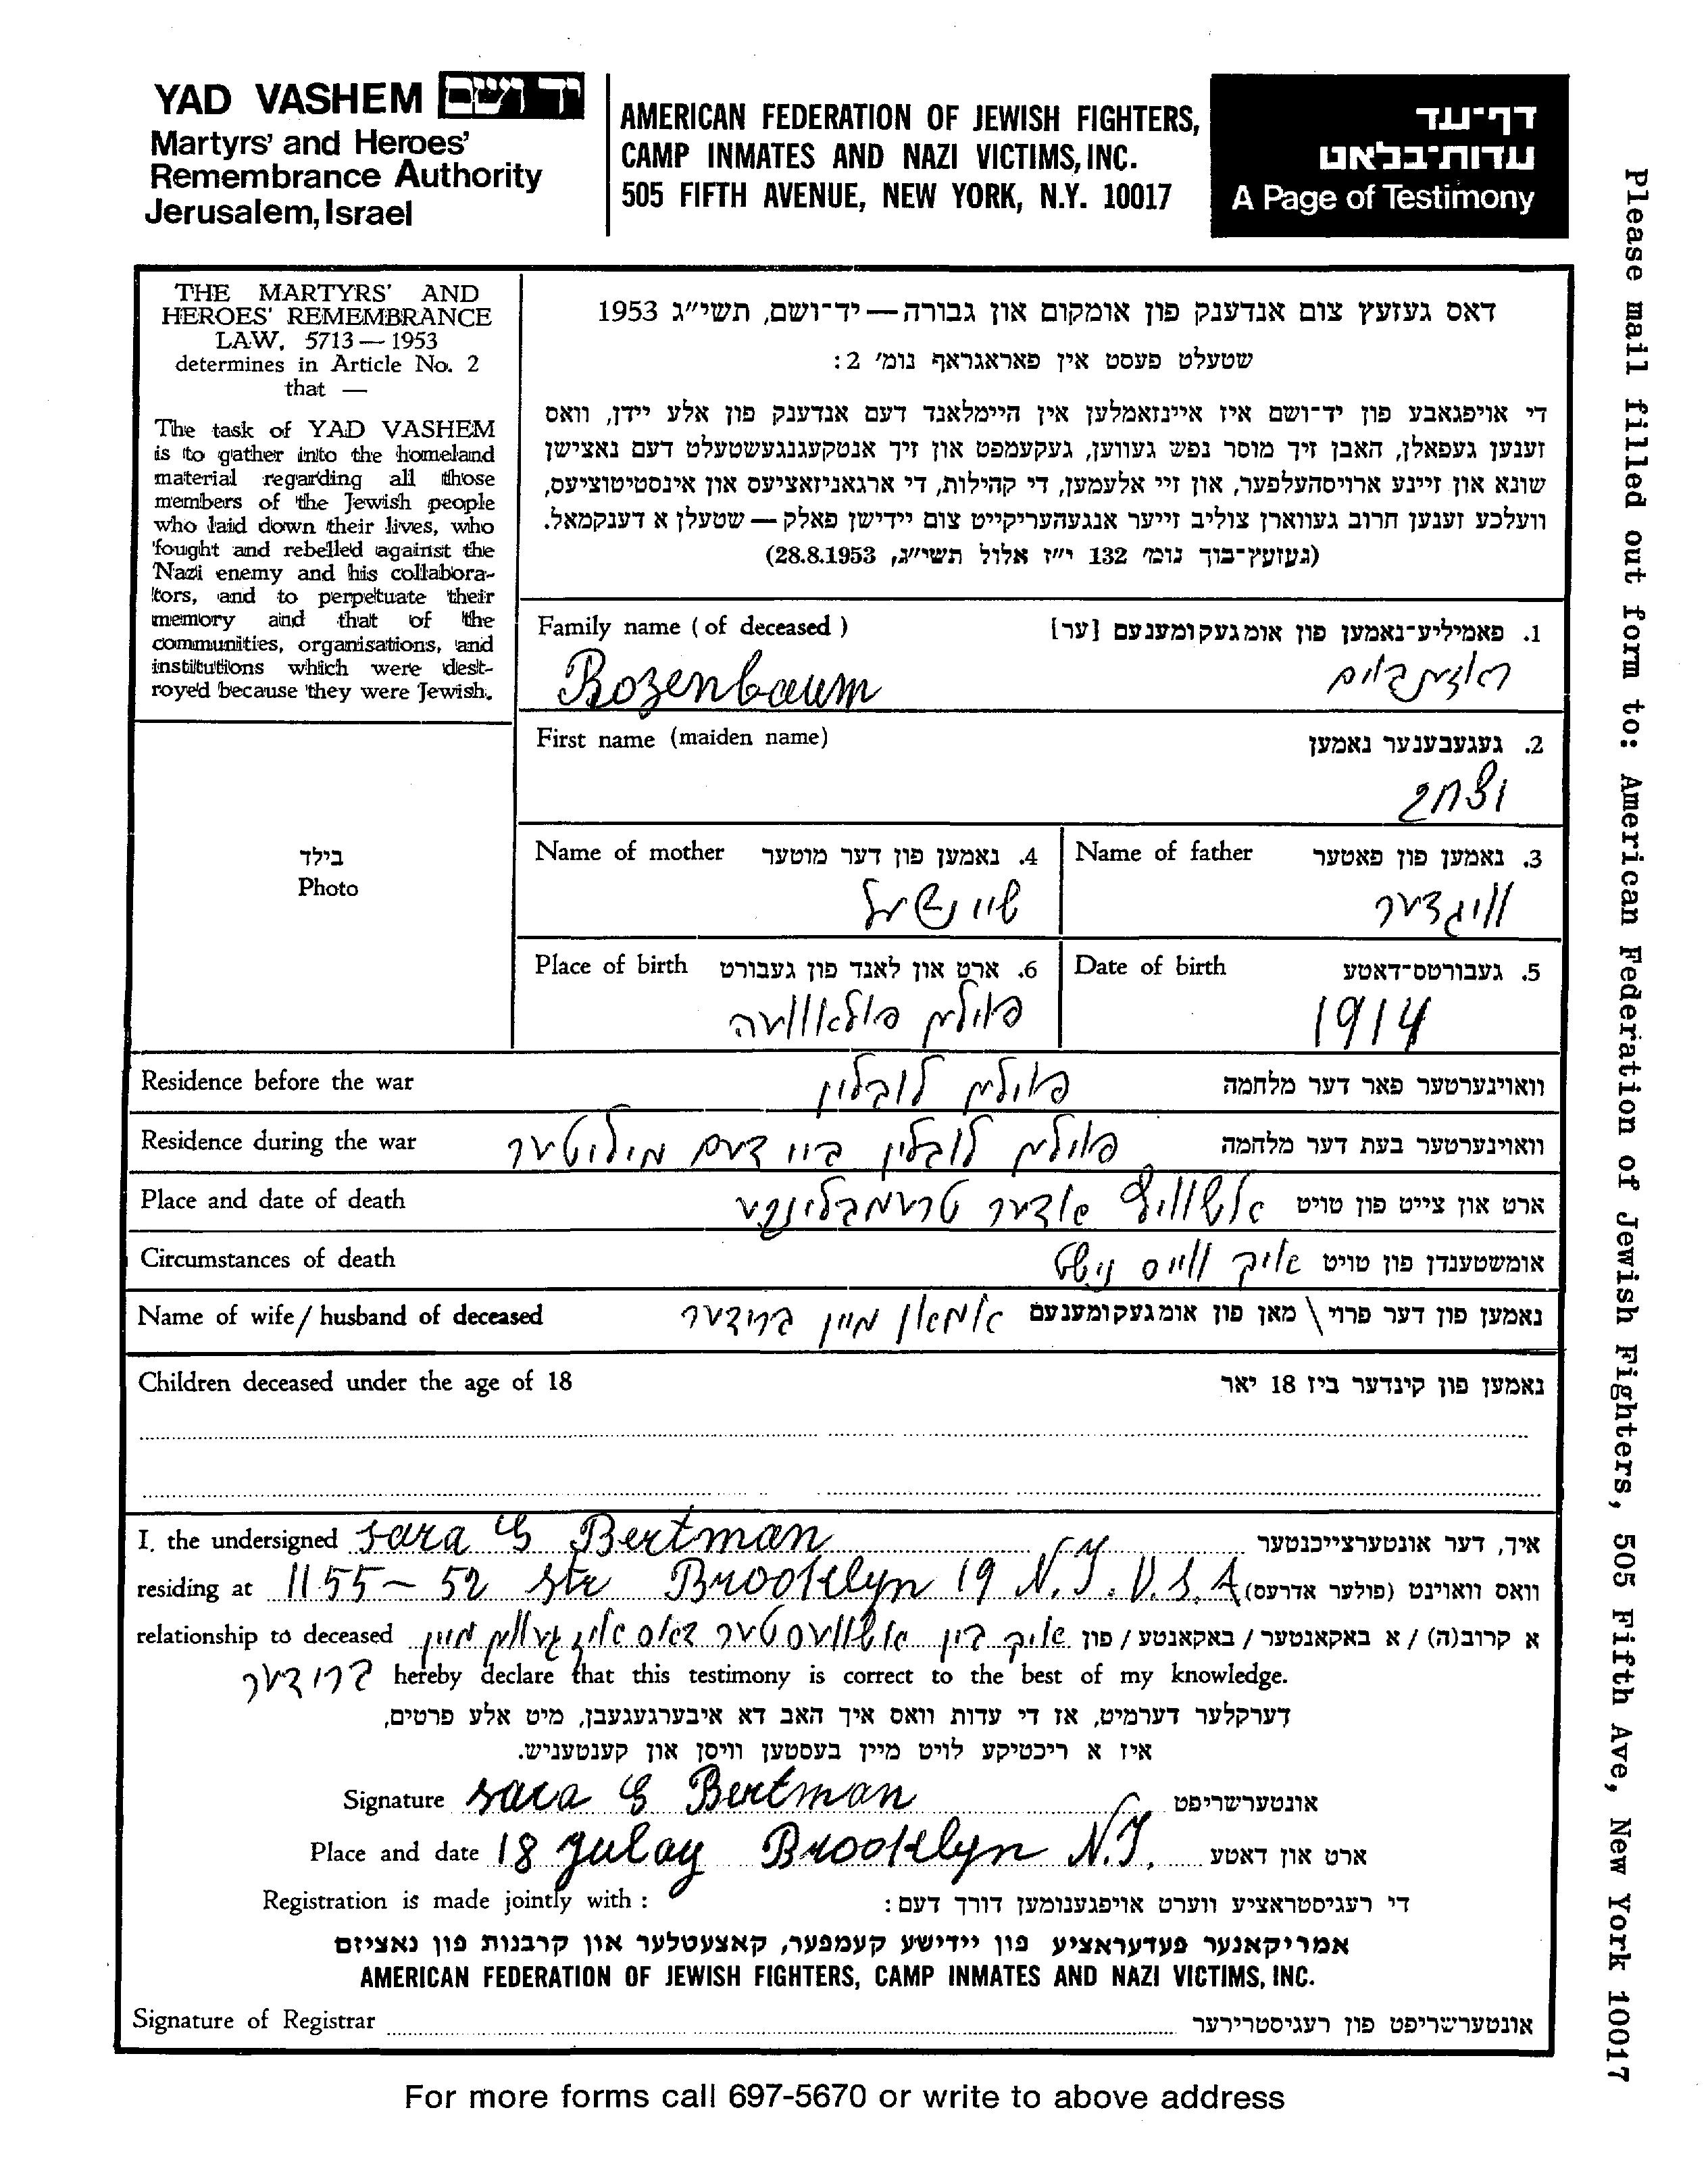 YAD VASHEM יד ושם
Martyrs' and Heroes'
Remembrance Authority
Jerusalem, Israel
AMERICAN FEDERATION OF JEWISH FIGHTERS,
CAMP INMATES AND NAZI VICTIMS, INC.
505 FIFTH AVENUE, NEW YORK, N.Y. 10017
דף־עד
עדות־בלאט
A Page of Testimony
THE MARTYRS' AND
HEROES' REMEMBRANCE
LAW, 5713 — 1953
determines in Article No. 2
that —
The task of YAD VASHEM
is to gather into the homeland
material regarding all those
members of the Jewish people
who laid down their lives, who
fought and rebelled against the
Nazi enemy and his collabora-
tors, and to perpetuate their
memory and that of the
communities, organisations, and
institutions which were dest-
royed because they were Jewish.
דאס געזעץ צום אנדענק פון אומקום און גבורה — יד־ושם, תשי״ג 1953
שטעלט פעסט אין פאראגראף נומ׳ 2:
די אויפגאבע פון יד־ושם איז איינזאמלען אין היימלאנד דעם אנדענק פון אלע יידן, וואס
זענען געפאלן, האבן זיך מוסר נפש געווען, געקעמפט און זיך אנטקעגנגעשטעלט דעם נאצישן
שונא און זיינע ארויסהעלפער, און זיי אלעמען, די קהילות, די ארגאניזאציעס און אינסטיטוציעס,
וועלכע זענען חרוב געווארן צוליב זייער אנגעהעריקייט צום יידישן פאלק — שטעלן א דענקמאל.
(געזעץ־בוך נומ׳ 132 י״ז אלול תשי״ג, 28.8.1953)
Family name (of deceased) 1. פאמיליע־נאמען פון אומגעקומענעם [ער]
Rozenbaum ראזענבוים
First name (maiden name) 2. געגעבענער נאמען
יצחק
Name of mother 4. נאמען פון דער מוטער
Name of father 3. נאמען פון פאטער
שיינדעל
Place of birth 6. ארט און לאנד פון געבורט
Date of birth 5. געבורטס־דאטע
פוילען פולאוועה
1914
Residence before the war פוילען לובלין וואוינערטער פאר דער מלחמה
Residence during the war פוילען לובלין ביי דעם מיליטער וואוינערטער בעת דער מלחמה
Place and date of death אשוויץ אדער טרעמבלינקע ארט און צייט פון טויט
Circumstances of death איך ווייס נישט אומשטענדן פון טויט
Name of wife / husband of deceased אמאן מיין ברידער נאמען פון דער פרוי \ מאן פון אומגעקומענעם
Children deceased under the age of 18 נאמען פון קינדער ביז 18 יאר
I, the undersigned Sara G Bertman איך, דער אונטערצייכנטער
residing at 1155 – 52 Str Brooklyn 19 N.Y. U.S.A (פולער אדרעס) וואס וואוינט
relationship to deceased איך בין אשוועסטער דאס איז געווען מיין א קרוב(ה) / א באקאנטער / באקאנטע / פון
ברידער hereby declare that this testimony is correct to the best of my knowledge.
דערקלער דערמיט, אז די עדות וואס איך האב דא איבערגעגעבן, מיט אלע פרטים,
איז א ריכטיקע לויט מיין בעסטען וויסן און קענטעניש.
Signature Sara G Bertman אונטערשריפט
Place and date 18 Julay Brooklyn N.Y. ארט און דאטע
Registration is made jointly with : די רעגיסטראציע ווערט אויפגענומען דורך דעם:
אמריקאנער פעדעראציע פון יידישע קעמפער, קאצעטלער און קרבנות פון נאציזם
AMERICAN FEDERATION OF JEWISH FIGHTERS, CAMP INMATES AND NAZI VICTIMS, INC.
Signature of Registrar אונטערשריפט פון רעגיסטרירער
בילד
Photo
For more forms call 697-5670 or write to above address
Please mail filled out form to: American Federation of Jewish Fighters, 505 Fifth Ave, New York 10017